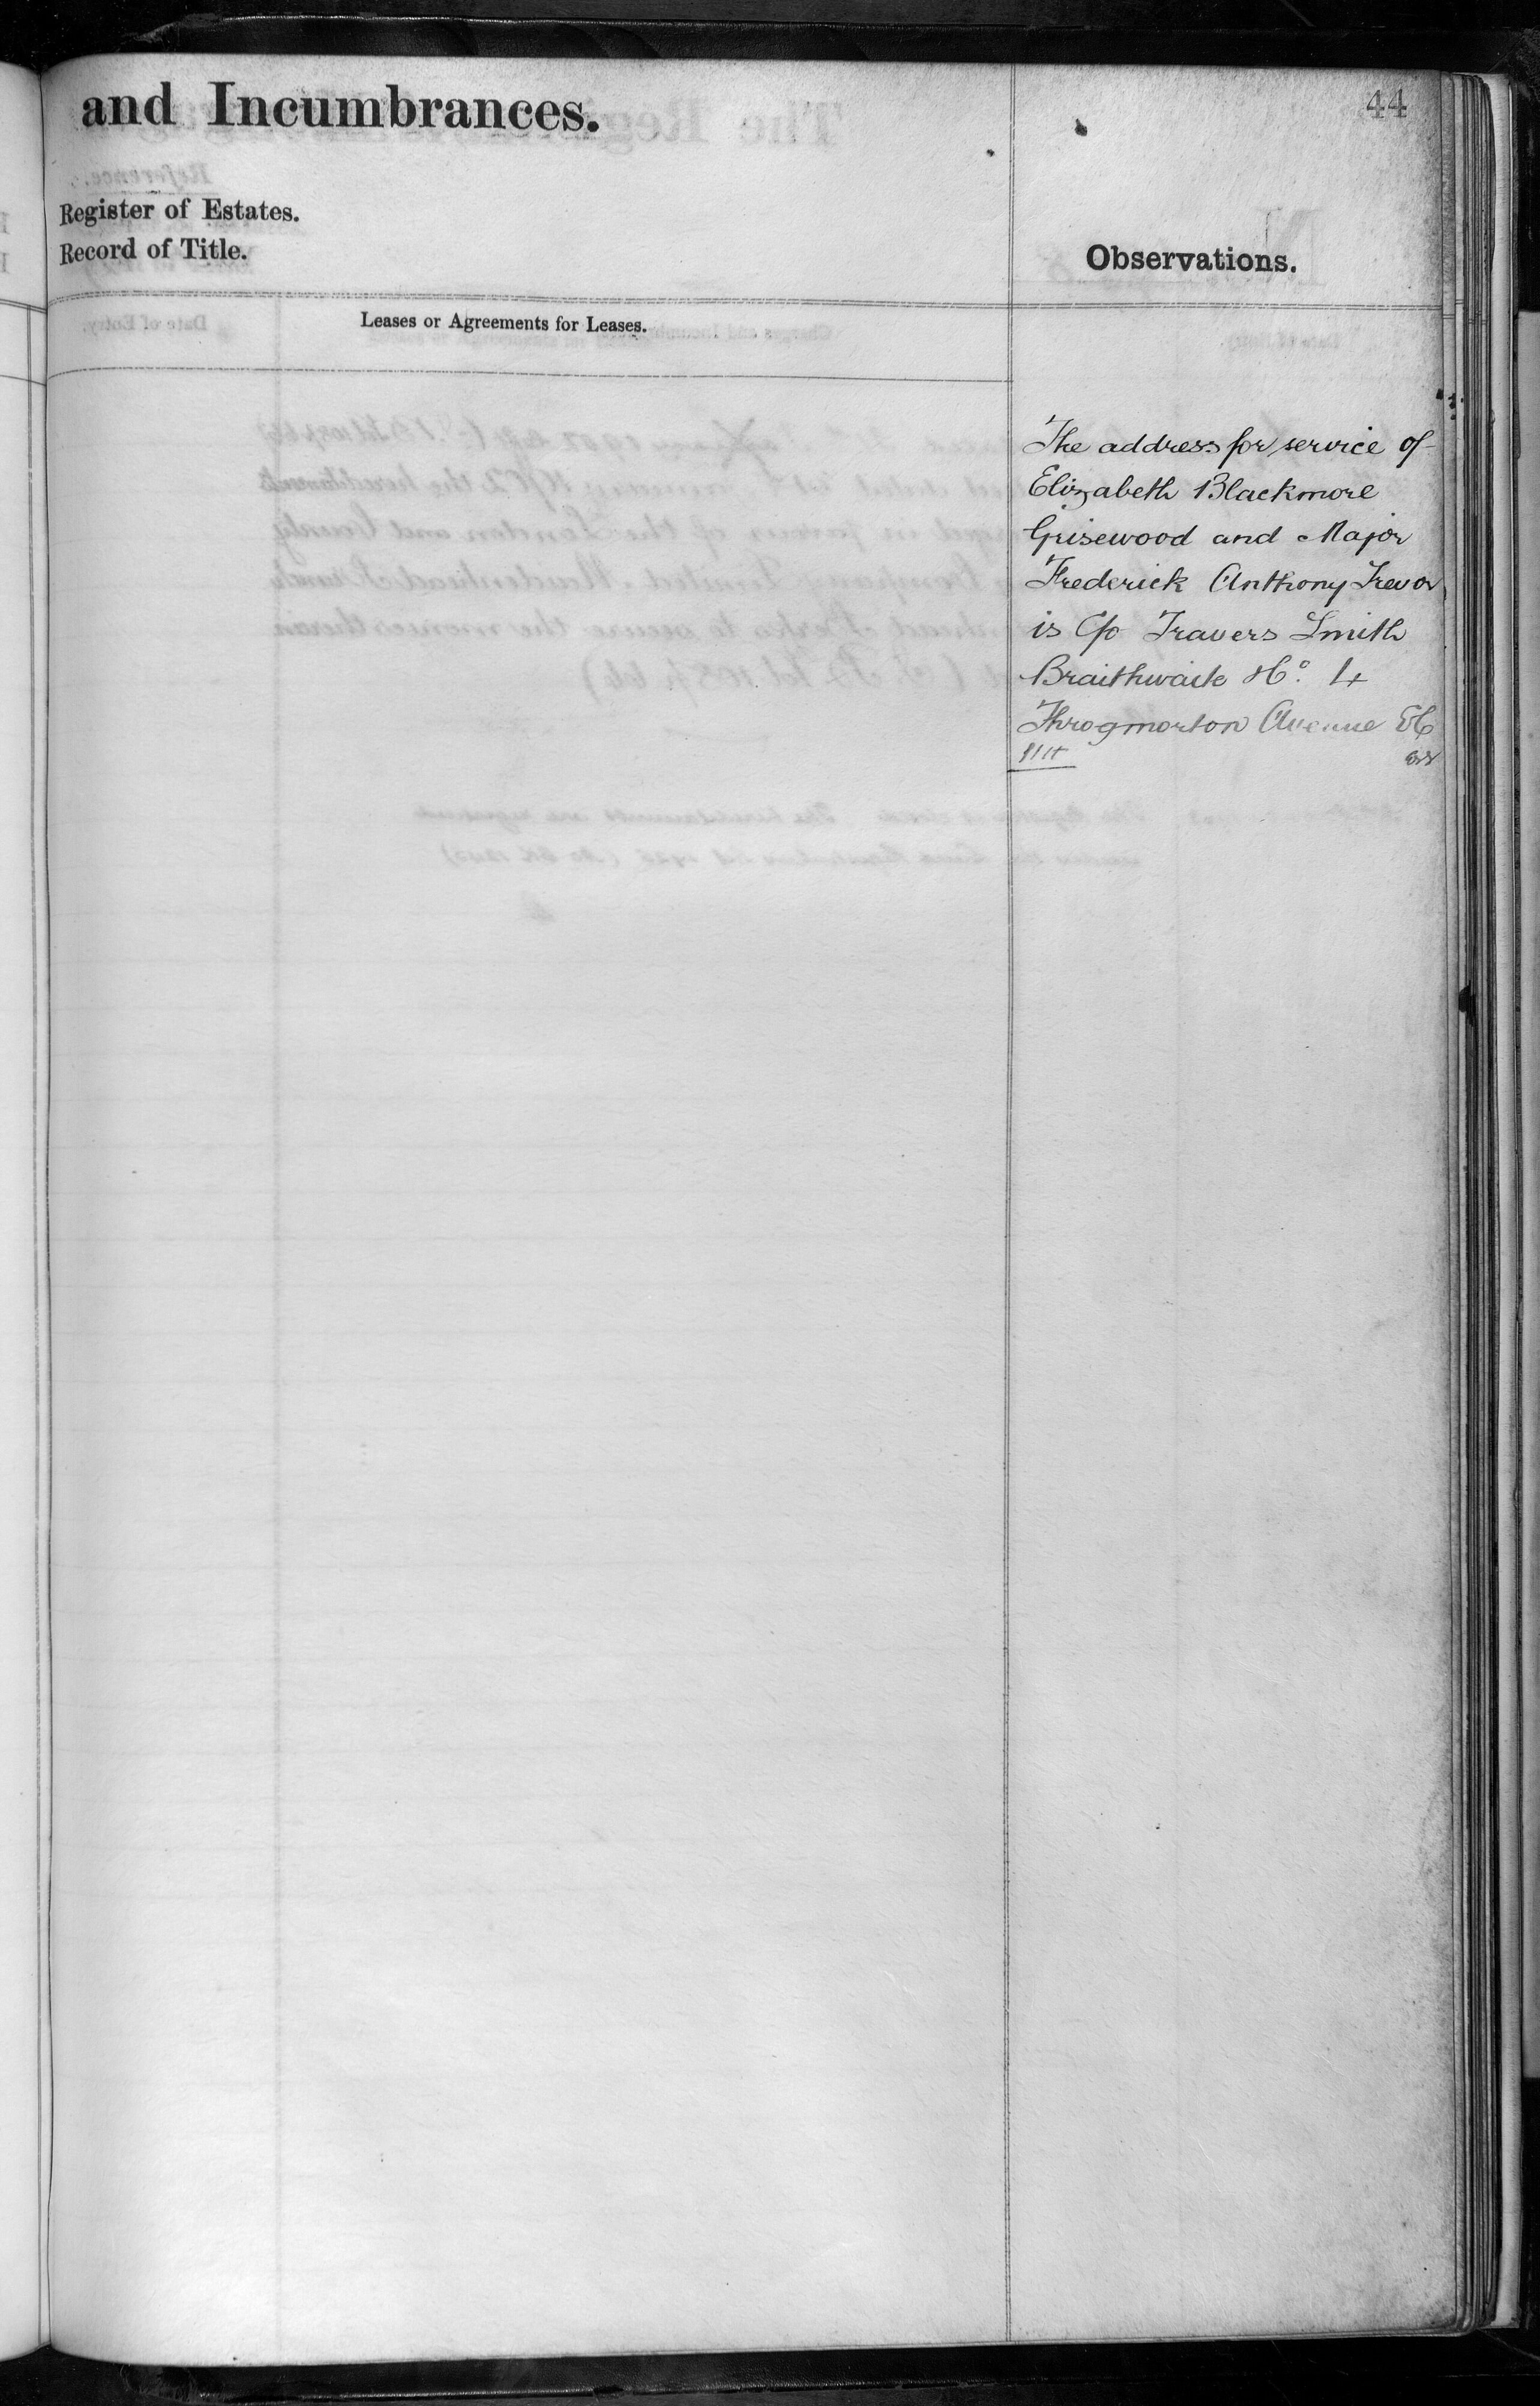 and Incumbrances.
44
Register of Estates.
Record of Title.
Observations.
Leases or Agreements for Leases.
The address for service of
Elizabeth Blackmore
Grisewood and Major
Frederick Anthony Trevor
is C/o Travers Smith
Braithwaite & Co. 4
Throgmorton Avenue EC